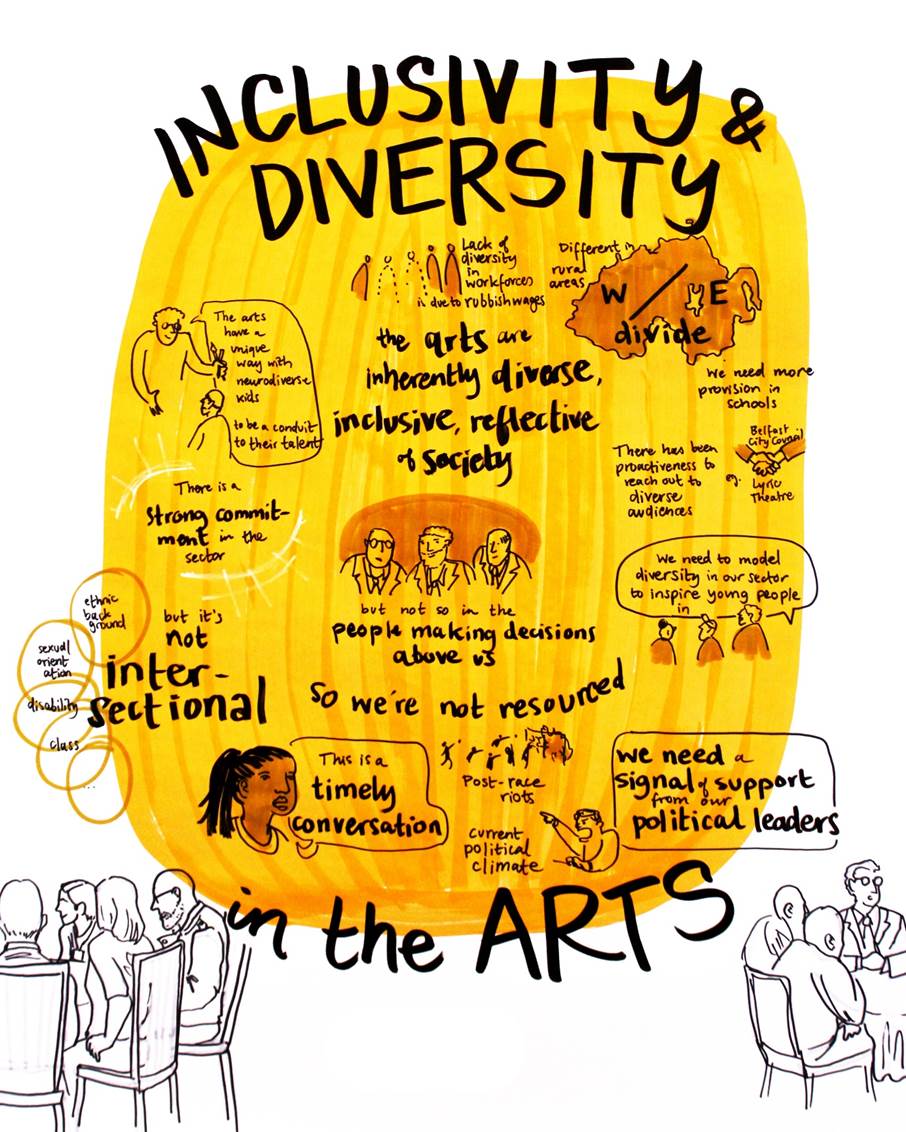 INCLUSIVITY &
DIVERSITY
Lack of
diversity
in
workforces
is due to rubbish wages
Different in
rural
areas
W / E
divide
The arts
have a
unique
way with
neurodiverse
kids
to be a conduit
to their talent
the arts are
inherently diverse,
inclusive, reflective
of society
We need more
provision in
schools
There has been
proactiveness to
reach out to
diverse
audiences
eg.
Belfast
City Council
Lyric
Theatre
There is a
strong commit-
ment in the
sector
but not so in the
people making decisions
above us
We need to model
diversity in our sector
to inspire young people
in
ethnic
back
ground
sexual
orient
ation
disability
class
...
but it's
not
inter-
sectional
So we're not resourced
This is a
timely
conversation
Post-race
riots
current
political
climate
we need a
signal of support
from our
political leaders
in the ARTS